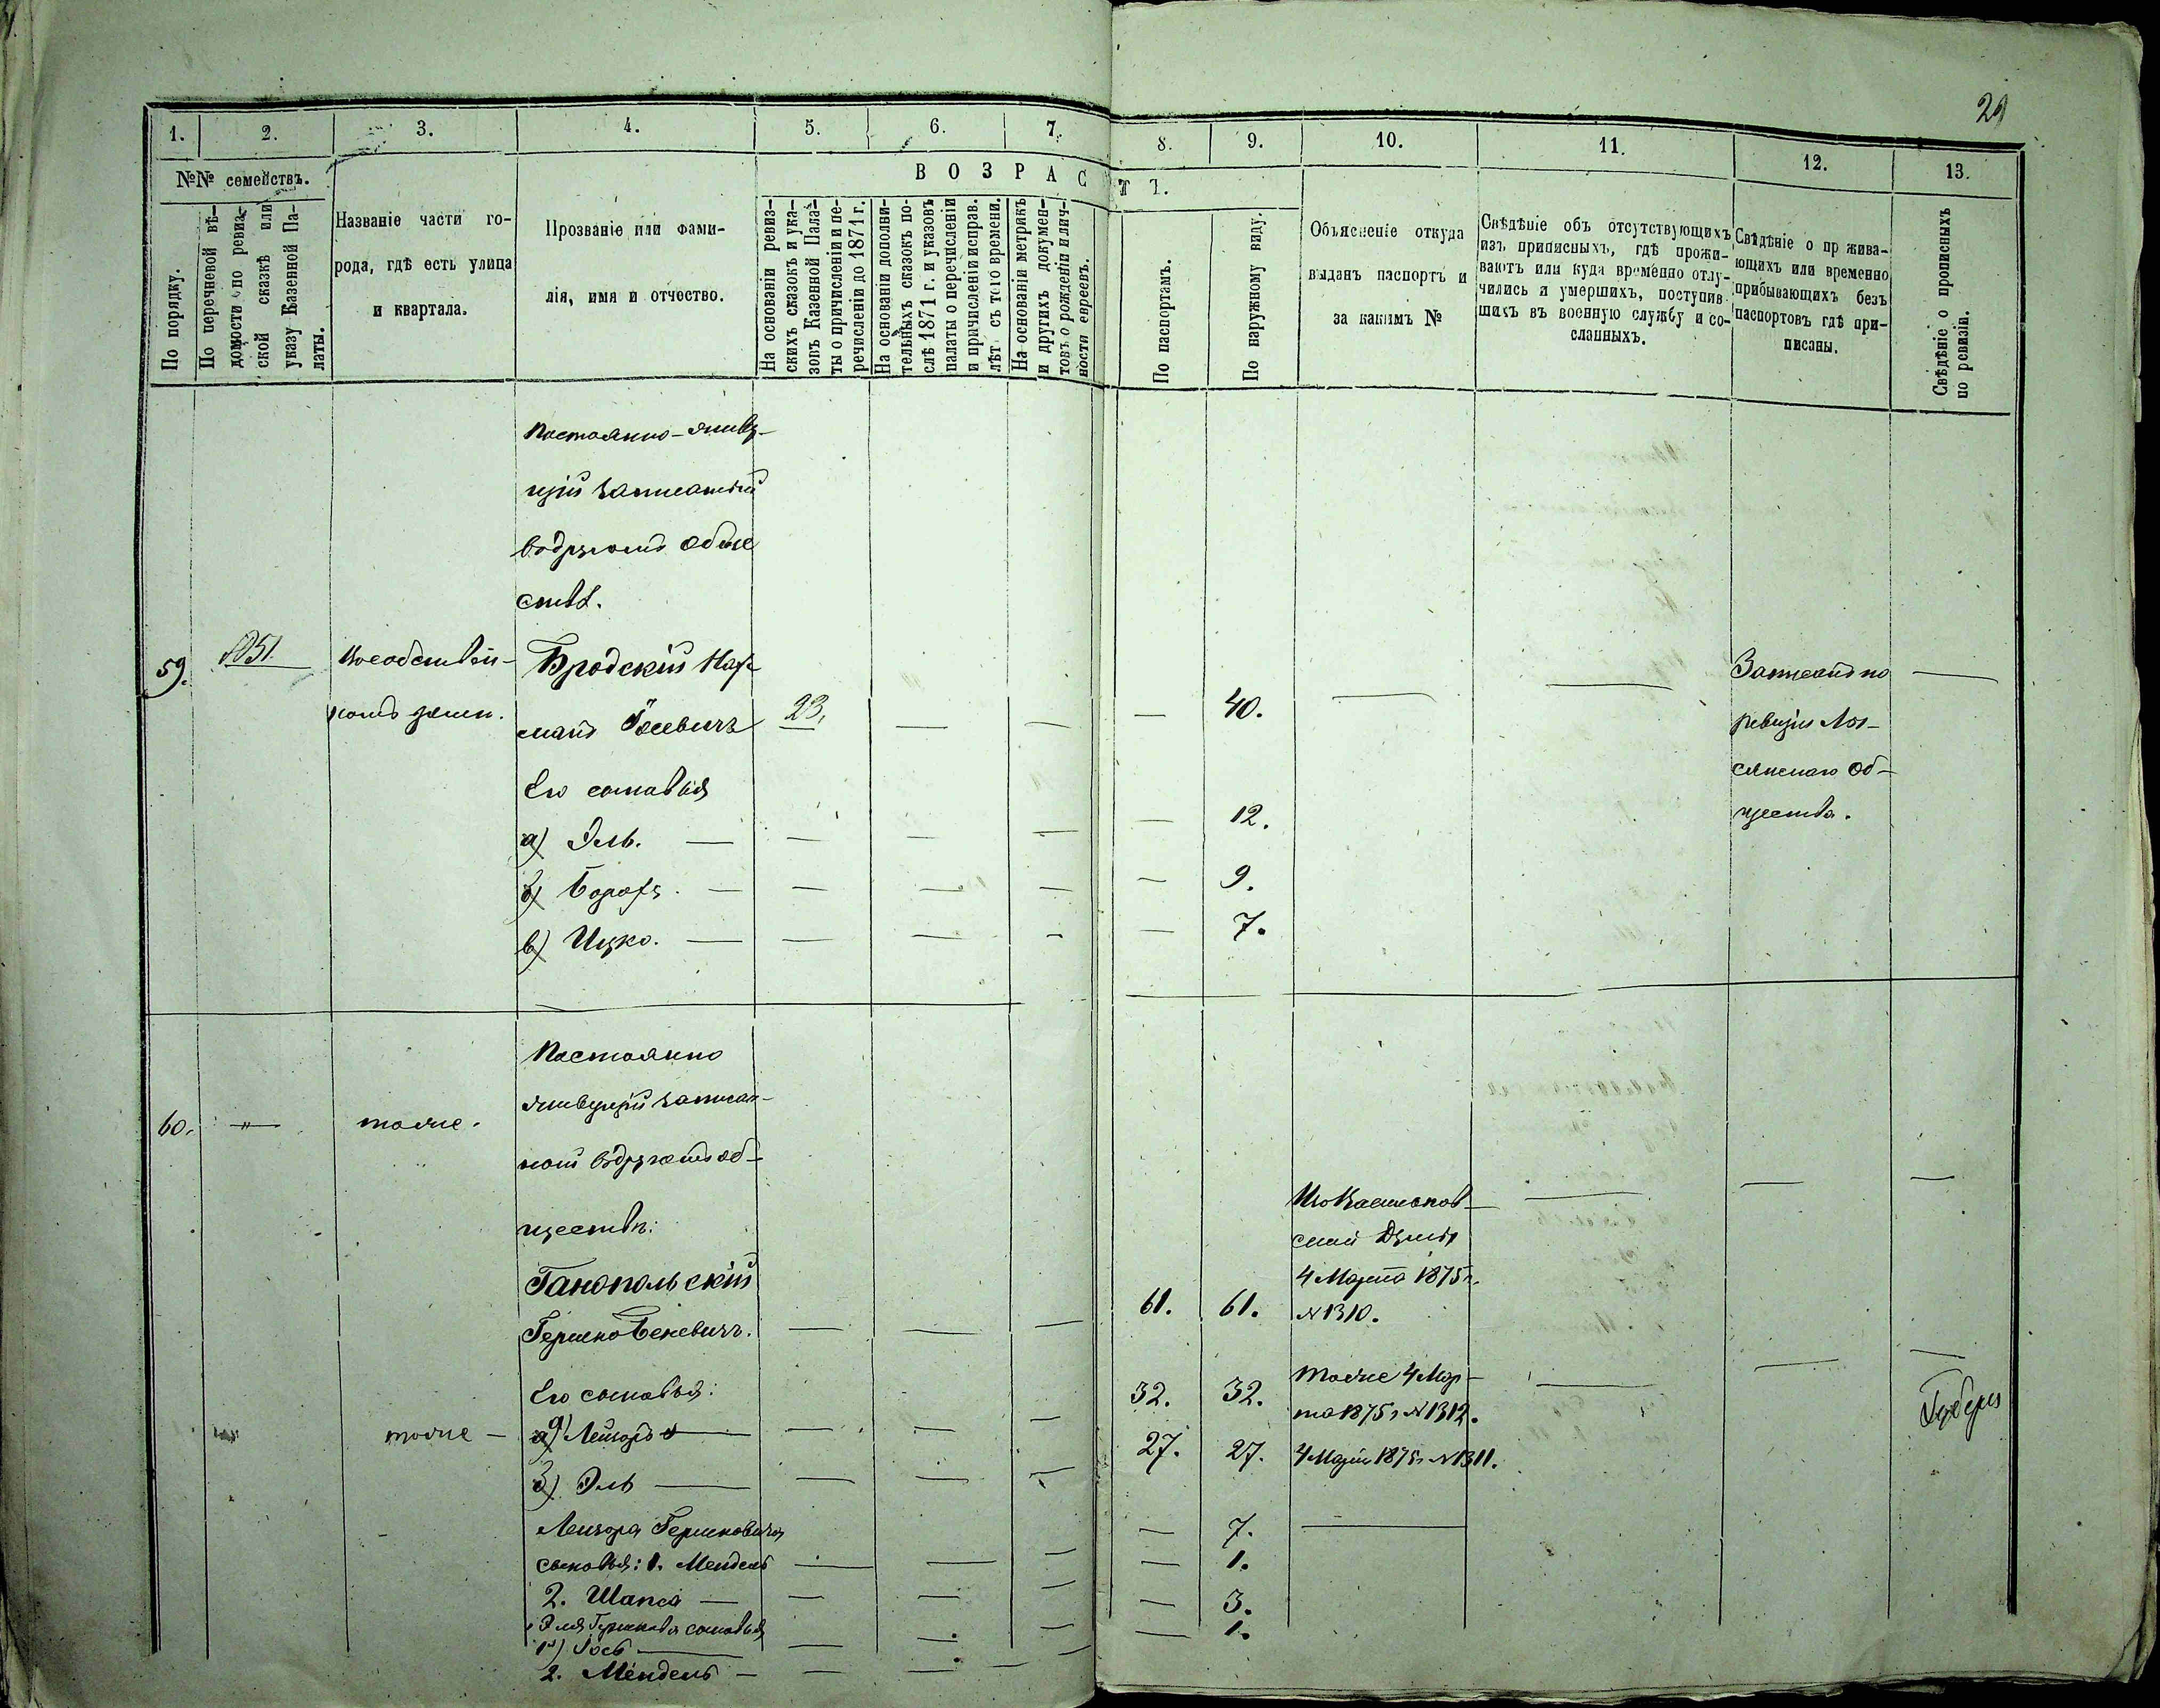 29
1. 2. 3. 4. 5. 6. 7. 8. 9. 10. 11. 12. 13.
№№ семействъ.
В О З Р А С Т Ъ.
По порядку.
По перечневой вѣ-
домости по ревиз-
ской сказкѣ или
указу Казенной Па-
латы.
Названіе части го-
рода, гдѣ есть улица
и квартала.
Прозваніе или фами-
лія, имя и отчество.
На основаніи ревиз-
скихъ сказокъ и ука-
зовъ Казенной Пала-
ты о причисленіи и пе-
речисленіи до 1871 г.
На основаніи дополни-
тельныхъ сказокъ по-
слѣ 1871 г. и указовъ
палаты о перечисленіи
и причисленіи исправ.
лѣт съ того времени.
На основаніи метрикъ
и другихъ докумен-
товъ о рожденіи и лич-
ности евреевъ.
По паспортамъ.
По наружному виду.
Объясненіе откуда
выданъ паспортъ и
за какимъ №
Свѣдѣніе объ отсутствующихъ
изъ приписныхъ, гдѣ прожи-
ваютъ или куда временно отлу-
чились и умершихъ, поступив-
шихъ въ военную службу и со-
сланныхъ.
Свѣдѣніе о пр жива-
ющихъ или временно
прибывающихъ безъ
паспортовъ гдѣ при-
писаны.
Свѣдѣніе о прописныхъ
по ревизіи.
Постоянно-живу-
щій записанный
въ другомъ обще
ствѣ.
59. Бродскій Нах-
манъ Іосевичъ 23. — — — 40. — —
Его сыновья
а) Эль. — — — — — 12.
б) Борохъ. — — — — — 9.
в) Ицко. — — — — — 7.
Записанъ по
ревизіи
скаго Об-
щества.
—
Постоянно
живущій записан-
60. — " — тоже.
ный въ другомъ об-
ществѣ:
Ганопольскій
Гершко Беневичъ. — — — 61. 61.
Думы
4 Марта 1875 г.
№ 1310.
— — —
Его сыновья:
а) Лейзоръ — — — — 32. 32. тоже 4 Мар-
та 1875 г № 1312.
тоже —
б) Эль — — — — 27. 27. 4 Марта 1875 г № 1311.
— — —
Лейзора Гершковича
сыновья: 1. Мендель — — — — 7. —
2. Шапса — — — — — 1.
Эля Гершкова сыновья
1) Іосъ — — — — — 3.
2. Мендель — — — — — 1.